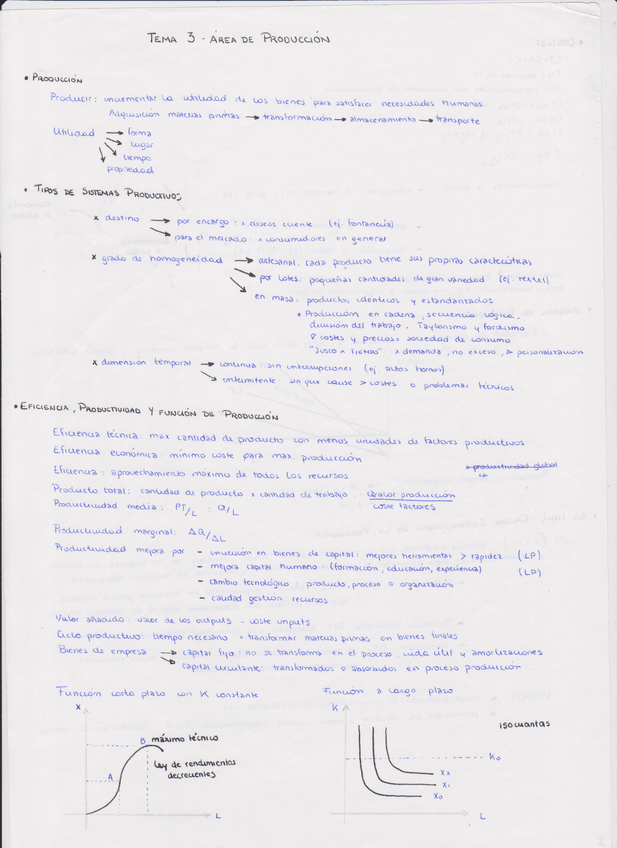 TEMA 3 - ÁREA DE PRODUCCIÓN
• PRODUCCIÓN
Producir: incrementar la utilidad de los bienes para satisfacer necesidades humanas.
Adquisición materias primas → transformación → almacenamiento → transporte
Utilidad → forma
→ lugar
→ tiempo
propiedad
• TIPOS DE SISTEMAS PRODUCTIVOS
x destino → por encargo: x deseos cliente (ej. fontanería)
→ para el mercado: x consumidores en general
x grado de homogeneidad → artesanal: cada producto tiene sus propias características
→ por lotes: pequeñas cantidades de gran variedad (ej. textil)
en masa: productos idénticos y estandarizados
• Producción en cadena, secuencia lógica,
división del trabajo, Taylorismo y fordismo
costes y precios: sociedad de consumo
"JUSTO A TIEMPO": x demanda, no exceso, > personalización
x dimensión temporal → continua: sin interrupciones (ej. altos hornos)
→ intermitente: sin que cause > costes o problemas técnicos
• EFICIENCIA, PRODUCTIVIDAD Y FUNCIÓN DE PRODUCCIÓN
Eficiencia técnica: max cantidad de producto con menos unidades de factores productivos
Eficiencia económica: mínimo coste para max. producción
Eficiencia: aprovechamiento máximo de todos los recursos
productividad global
Producto total: cantidad de producto x cantidad de trabajo: valor producción
Productividad media: PT/L : Q/L coste factores
Productividad marginal: ΔQ/ΔL
Productividad mejora por - inversión en bienes de capital: mejores herramientas > rapidez (LP)
- mejora capital humano (formación, educación, experiencia) (LP)
- cambio tecnológico: producto, proceso o organización
- calidad gestión recursos
Valor añadido: valor de los outputs - coste inputs
Ciclo productivo: tiempo necesario x transformar materias primas en bienes finales
Bienes de empresa → capital fijo: no se transforma en el proceso, vida útil y amortizaciones
→ capital circulante: transformados o absorbidos en proceso producción
Función corto plazo con K constante
Función a largo plazo
X
B máximo técnico
ley de rendimientos
decrecientes
A
L
K
isocuantas
K₀
X₂
X₁
X₀
L